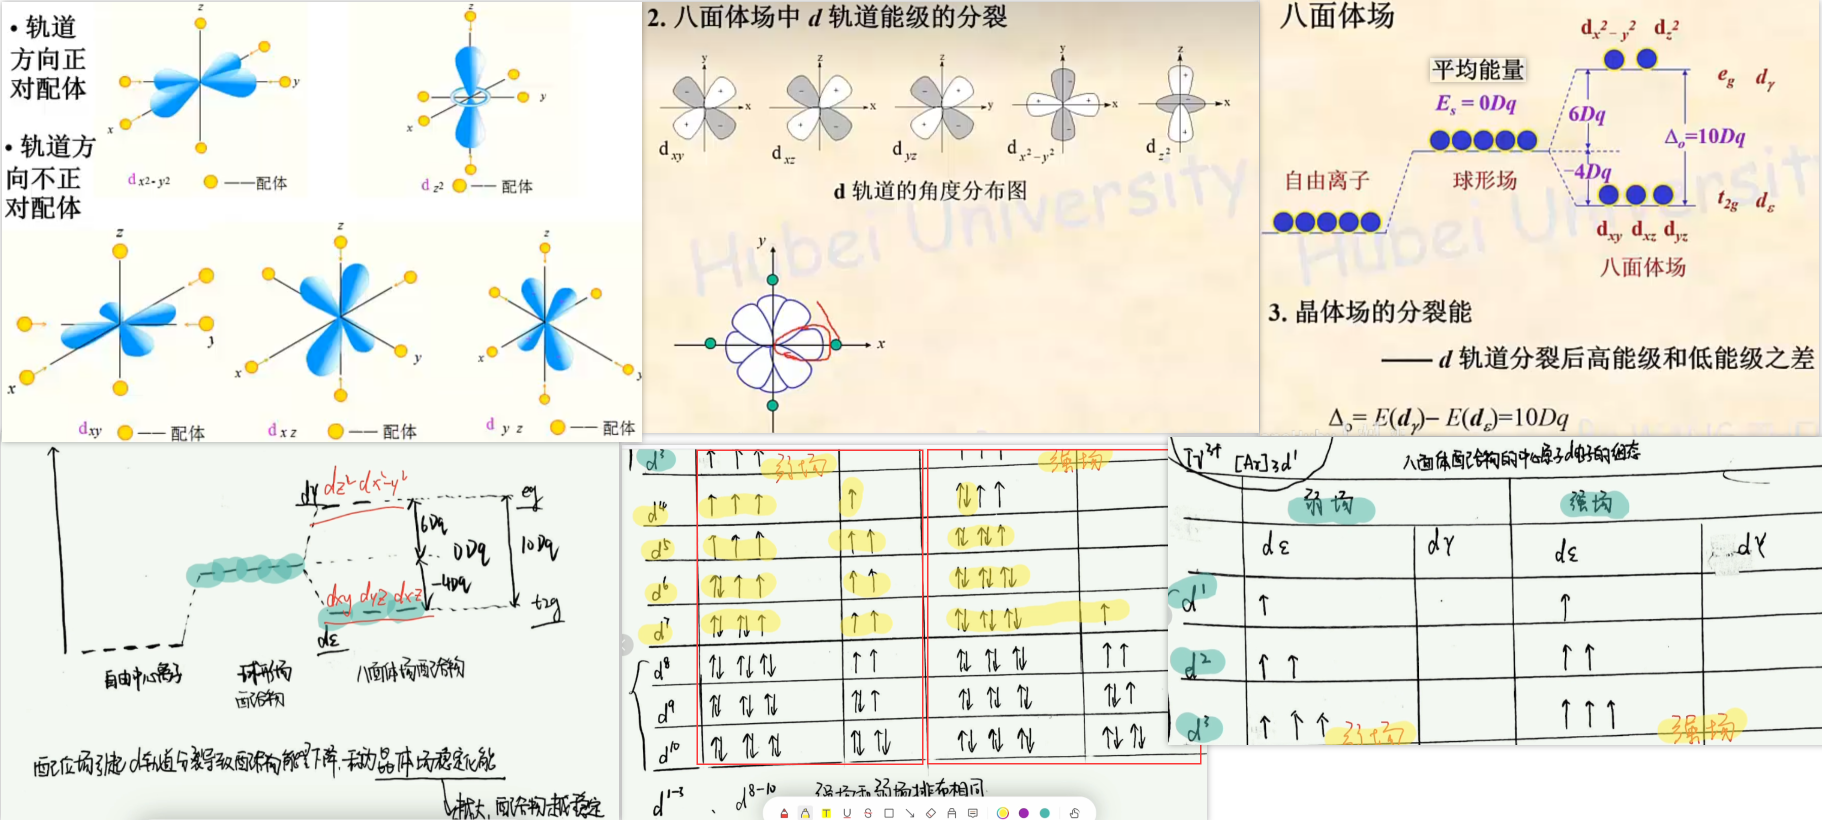 • 轨道
方向正
对配体
• 轨道方
向不正
对配体
z
y
x
d x²-y²
——配体
z
y
x
d z²
—— 配体
z
y
x
dxy
—— 配体
z
y
x
d x z
—— 配体
z
y
x
d y z
—— 配体
2. 八面体场中 d 轨道能级的分裂
y
x
- +
+ -
dxy
z
x
- +
+ -
dxz
z
y
- +
+ -
dyz
y
x
-
+ +
-
dx²-y²
z
x
+
-
+
dz²
d 轨道的角度分布图
Hubei University
y
x
八面体场
dx²-y² dz²
平均能量
Es = 0Dq
eg dγ
6Dq
Δo=10Dq
-4Dq
自由离子
球形场
t2g dε
dxy dxz dyz
八面体场
Hubei University
3. 晶体场的分裂能
—— d 轨道分裂后高能级和低能级之差
Δo= E(dγ)– E(dε)=10Dq
dγ
dz² dx²-y²
eg
6Dq
0Dq
10Dq
-4Dq
dxy dyz dxz
t2g
dε
自由中心离子
球形场
配合物
八面体场配合物
配位场引起d轨道分裂导致配合物能量下降,称为晶体场稳定化能
越大,配合物越稳定
d³ ↑ ↑ ↑ 弱场 ↑ ↑ ↑ 强场
d⁴ ↑ ↑ ↑ ↑ ↑↓ ↑ ↑
d⁵ ↑ ↑ ↑ ↑ ↑ ↑↓ ↑↓ ↑
d⁶ ↑↓ ↑ ↑ ↑ ↑ ↑↓ ↑↓ ↑↓
d⁷ ↑↓ ↑↓ ↑ ↑ ↑ ↑↓ ↑↓ ↑↓ ↑
d⁸ ↑↓ ↑↓ ↑↓ ↑ ↑ ↑↓ ↑↓ ↑↓ ↑ ↑
d⁹ ↑↓ ↑↓ ↑↓ ↑↓ ↑ ↑↓ ↑↓ ↑↓ ↑↓ ↑
d¹⁰ ↑↓ ↑↓ ↑↓ ↑↓ ↑↓ ↑↓ ↑↓ ↑↓ ↑↓ ↑↓
d¹⁻³、d⁸⁻¹⁰ 强场和弱场排布相同
[Ar]3d¹
八面体配合物的中心离子d电子的组态
弱场 强场
dε dγ dε dγ
d¹ ↑ ↑
d² ↑ ↑ ↑ ↑
d³ ↑ ↑ ↑ 弱场 ↑ ↑ ↑ 强场